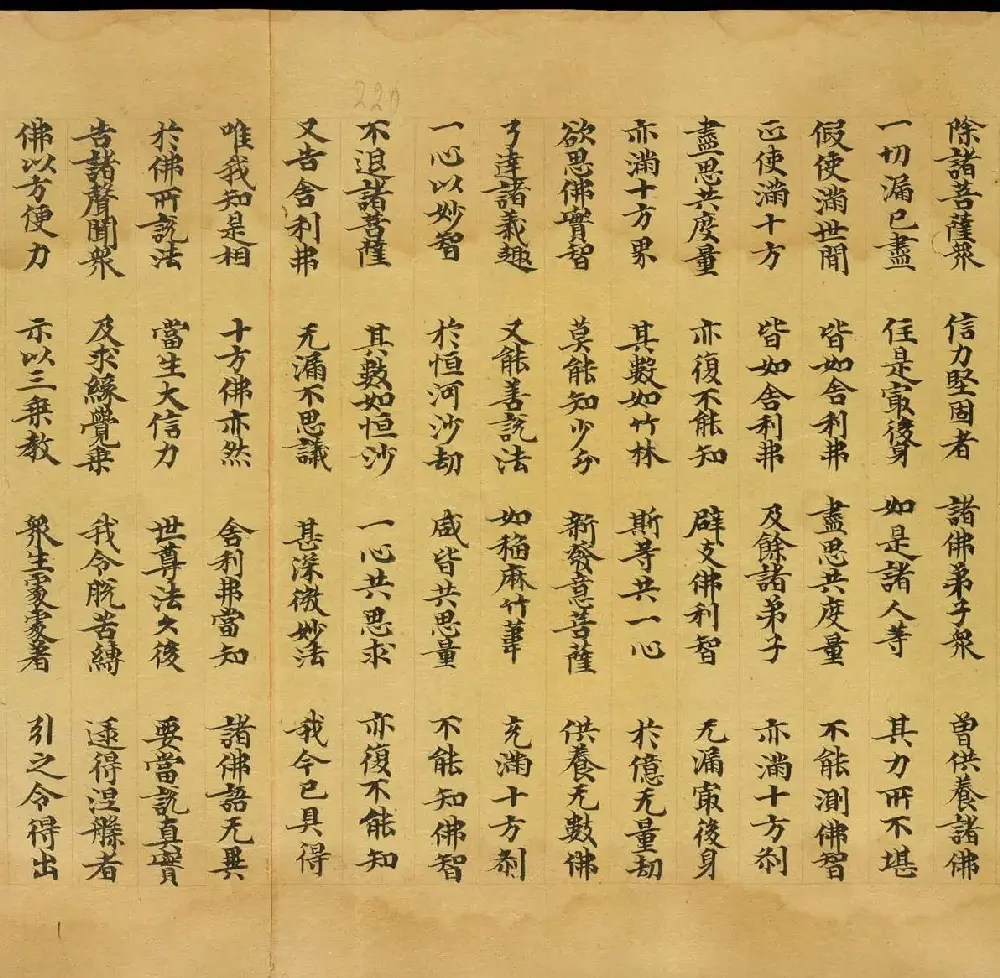 除諸菩薩衆 信力堅固者 諸佛弟子衆 曾供養諸佛
一切漏已盡 住是㝡後身 如是諸人等 其力所不堪
假使滿世間 皆如舍利弗 盡思共度量 不能測佛智
正使滿十方 皆如舍利弗 及餘諸弟子 亦滿十方刹
盡思共度量 亦復不能知 辟支佛利智 无漏㝡後身
亦滿十方界 其數如竹林 斯等共一心 於億无量劫
欲思佛實智 莫能知少分 新發意菩薩 供養无數佛
了達諸義趣 又能善說法 如稲麻竹葦 充滿十方刹
一心以妙智 於恒河沙劫 咸皆共思量 不能知佛智
不退諸菩薩 其數如恒沙 一心共思求 亦復不能知
又告舍利弗 无漏不思議 甚深微妙法 我今已具得
唯我知是相 十方佛亦然 舍利弗當知 諸佛語无異
於佛所說法 當生大信力 世尊法久後 要當說真實
告諸聲聞衆 及求緣覺乗 我令脫苦縛 逮得涅槃者
佛以方便力 示以三乗教 衆生處處著 引之令得出
220